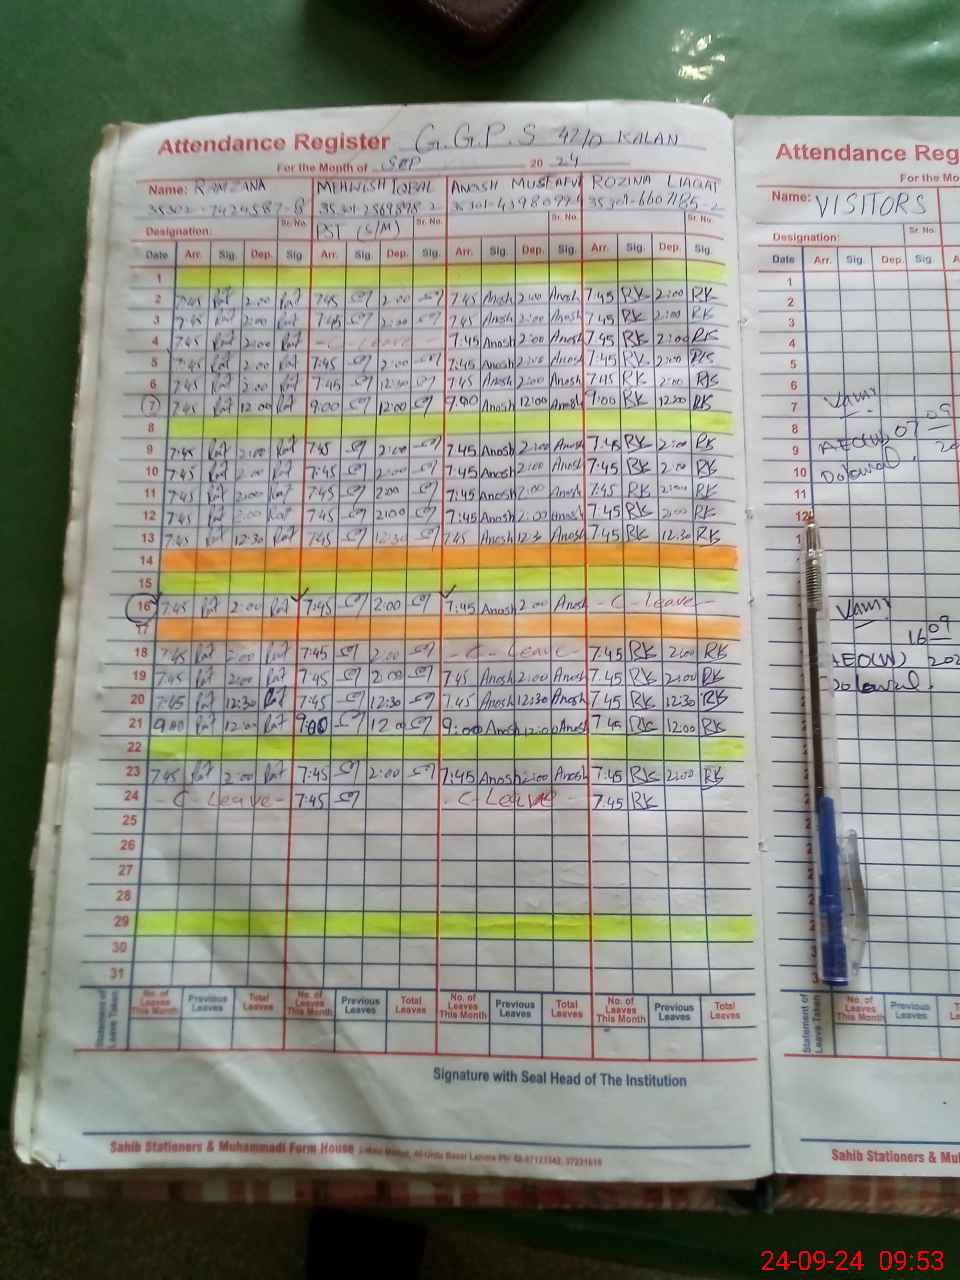 Attendance Register G.G.P.S 42/D KALAN
For the Month of SEP 20 24
Name: RAMZANA MEHWISH IQBAL ANOSH MUSTAFVI ROZINA LIAQAT
Sr. No. Sr. No. Sr. No. Sr. No.
Designation: PST (S/M)
Date Arr. Sig. Dep. Sig. Arr. Sig. Dep. Sig. Arr. Sig. Dep. Sig. Arr. Sig. Dep. Sig.
1
2 7:45 2:00 7:45 2:00 7:45 Anosh 2:00 Anosh 7:45 RK 2:00 RK
3 7:45 2:00 7:45 2:00 7:45 Anosh 2:00 Anosh 7:45 RK 2:00 RK
4 7:45 2:00 - C - Leave - 7:45 Anosh 2:00 Anosh 7:45 RK 2:00 RK
5 7:45 2:00 7:45 2:00 7:45 Anosh 2:00 Anosh 7:45 RK 2:00 RK
6 7:45 2:00 7:45 12:30 7:45 Anosh 2:00 Anosh 7:45 RK 2:00 RK
7 7:45 12:00 9:00 12:00 9:00 Anosh 12:00 Anosh 9:00 RK 12:00 RK
8
9 7:45 2:00 7:45 2:00 7:45 Anosh 2:00 Anosh 7:45 RK 2:00 RK
10 7:45 2:00 7:45 2:00 7:45 Anosh 2:00 Anosh 7:45 RK 2:00 RK
11 7:45 2:00 7:45 2:00 7:45 Anosh 2:00 Anosh 7:45 RK 2:00 RK
12 7:45 2:00 7:45 2:00 7:45 Anosh 2:00 Anosh 7:45 RK 2:00 RK
13 7:45 12:30 7:45 12:30 7:45 Anosh 12:3 Anosh 7:45 RK 12:30 RK
14
15
16 7:45 2:00 7:45 2:00 7:45 Anosh 2:00 Anosh - C - Leave -
17
18 7:45 2:00 7:45 2:00 - C - Leave - 7:45 RK 2:00 RK
19 7:45 2:00 7:45 2:00 7:45 Anosh 2:00 Anosh 7:45 RK 2:00 RK
20 7:45 12:30 7:45 12:30 7:45 Anosh 12:30 Anosh 7:45 RK 12:30 RK
21 9:00 12:00 9:00 12:00 9:00 Anosh 12:00 Anosh 7:45 RK 12:00 RK
22
23 7:45 2:00 7:45 2:00 7:45 Anosh 2:00 Anosh 7:45 RK 2:00 RK
24 - C - Leave - 7:45 - C - Leave - 7:45 RK
25
26
27
28
29
30
31
Statement of Leave Taken
No. of Leaves This Month Previous Leaves Total Leaves No. of Leaves This Month Previous Leaves Total Leaves No. of Leaves This Month Previous Leaves Total Leaves No. of Leaves This Month Previous Leaves Total Leaves
Signature with Seal Head of The Institution
Sahib Stationers & Muhammadi Form House
Attendance Reg
For the Mo
Name: VISITORS
Sr. No.
Designation:
Date Arr. Sig. Dep. Sig. A
1
2
3
4
5
6
7
8
9 AEO(W) 07 09
10
11
12
1609
AEO(W) 202
Statement of Leave Taken
No. of Leaves This Month Previous Leaves Total Leaves
Sahib Stationers & Mu
24-09-24 09:53